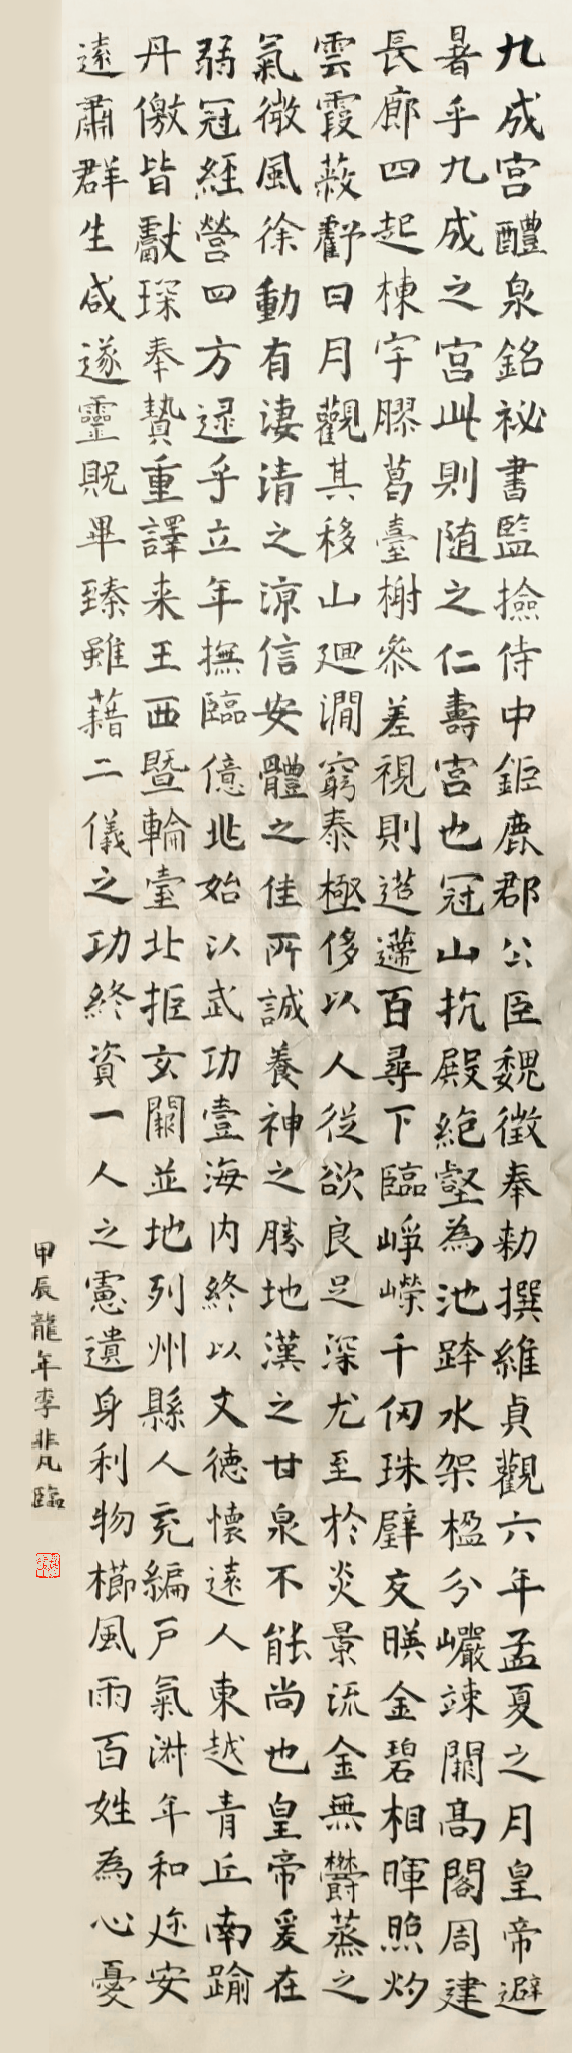 九成宮醴泉銘祕書監撿侍中鉅鹿郡公臣魏徵奉勅撰維貞觀六年孟夏之月皇帝避
暑乎九成之宮此則随之仁壽宮也冠山抗殿絶壑為池跨水架楹分巖竦闕髙閣周建
長廊四起棟宇膠葛臺榭參差視則迢遰百尋下臨崢嶸千仞珠壁交暎金碧相暉照灼
雲霞蔽虧日月觀其移山迴澗窮泰極侈以人従欲良足深尤至於炎景流金無欝蒸之
氣微風徐動有淒清之涼信安體之佳所誠養神之勝地漢之甘泉不能尚也皇帝爰在
弱冠經營四方逯乎立年撫臨億兆始以武功壹海内終以文德懷遠人東越青丘南踰
丹儌皆獻琛奉贄重譯来王西暨輪臺北拒玄闕並地列州縣人充編戶氣淋年和迩安
遠肅群生咸遂靈貺畢臻雖藉二儀之功終資一人之慮遺身利物櫛風雨百姓為心憂
甲辰龍年李非凡臨